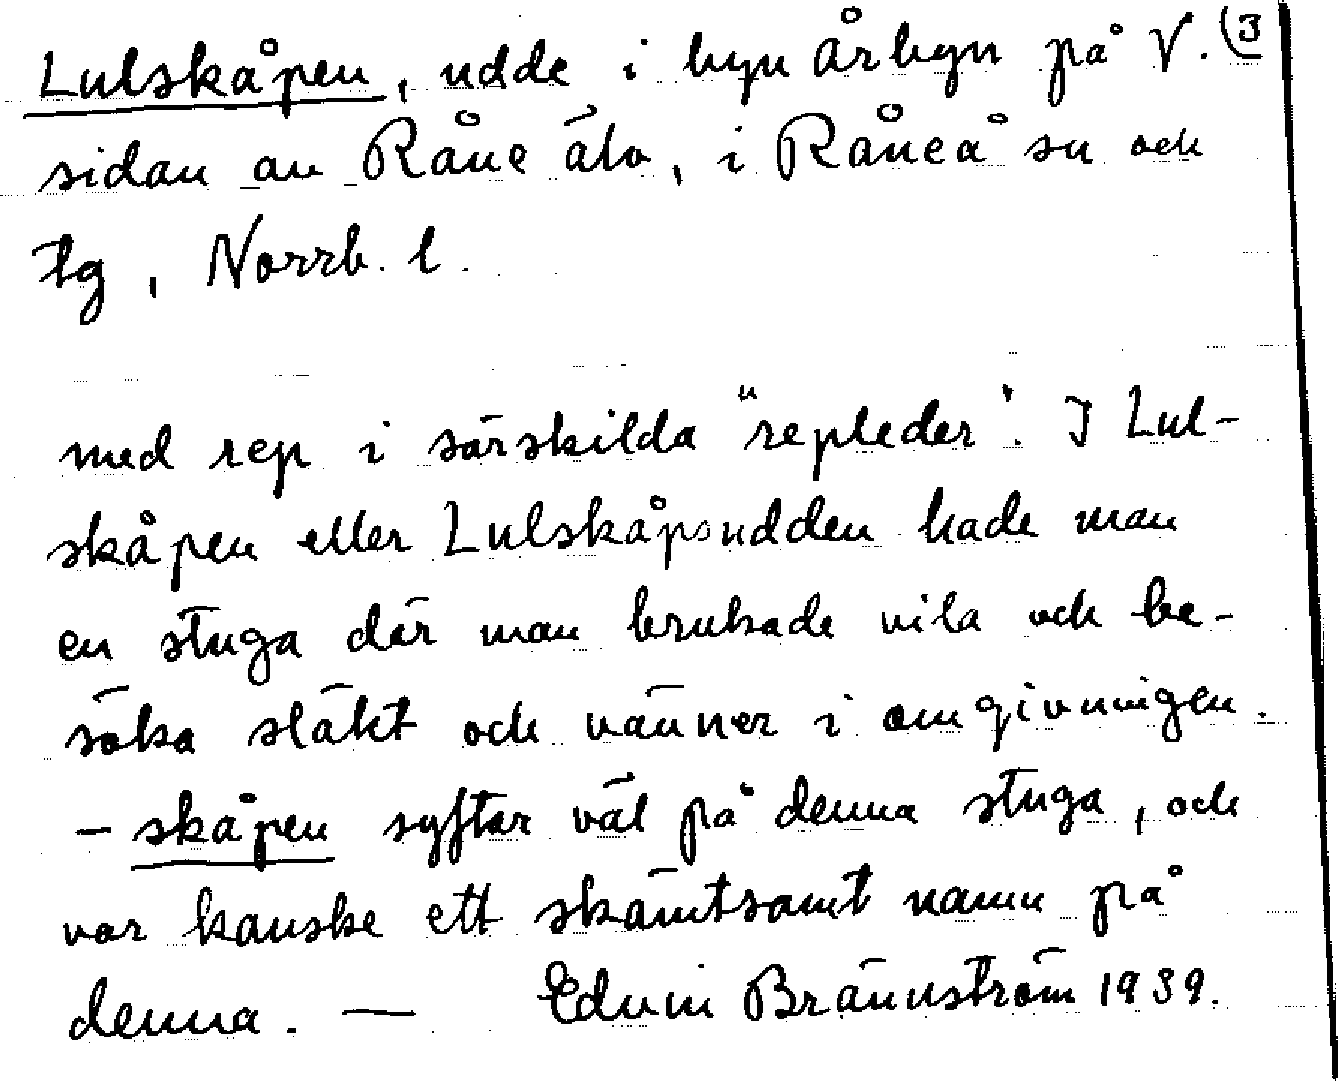 Lulskåpen, udde i byn Årbyn på V. (3
sidan av Råne älv, i Råneå sn och
tg, Norrb. l.
med rep i särskilda "repleder". I Lul-
skåpen eller Lulskåpsudden hade man
en stuga där man brukade vila och be-
söka släkt och vänner i omgivningen.
– skåpen syftar väl på denna stuga, och
var kanske ett skämtsamt namn på
denna. — Edvin Brännström 1939.